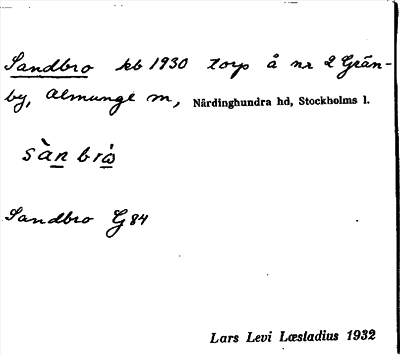 Sandbro kb 1930 torp å nr 2 Grän-
by, Almunge sn, Närdinghundra hd, Stockholms l.
sàn brò
Sandbro G 84
Lars Levi Læstadius 1932